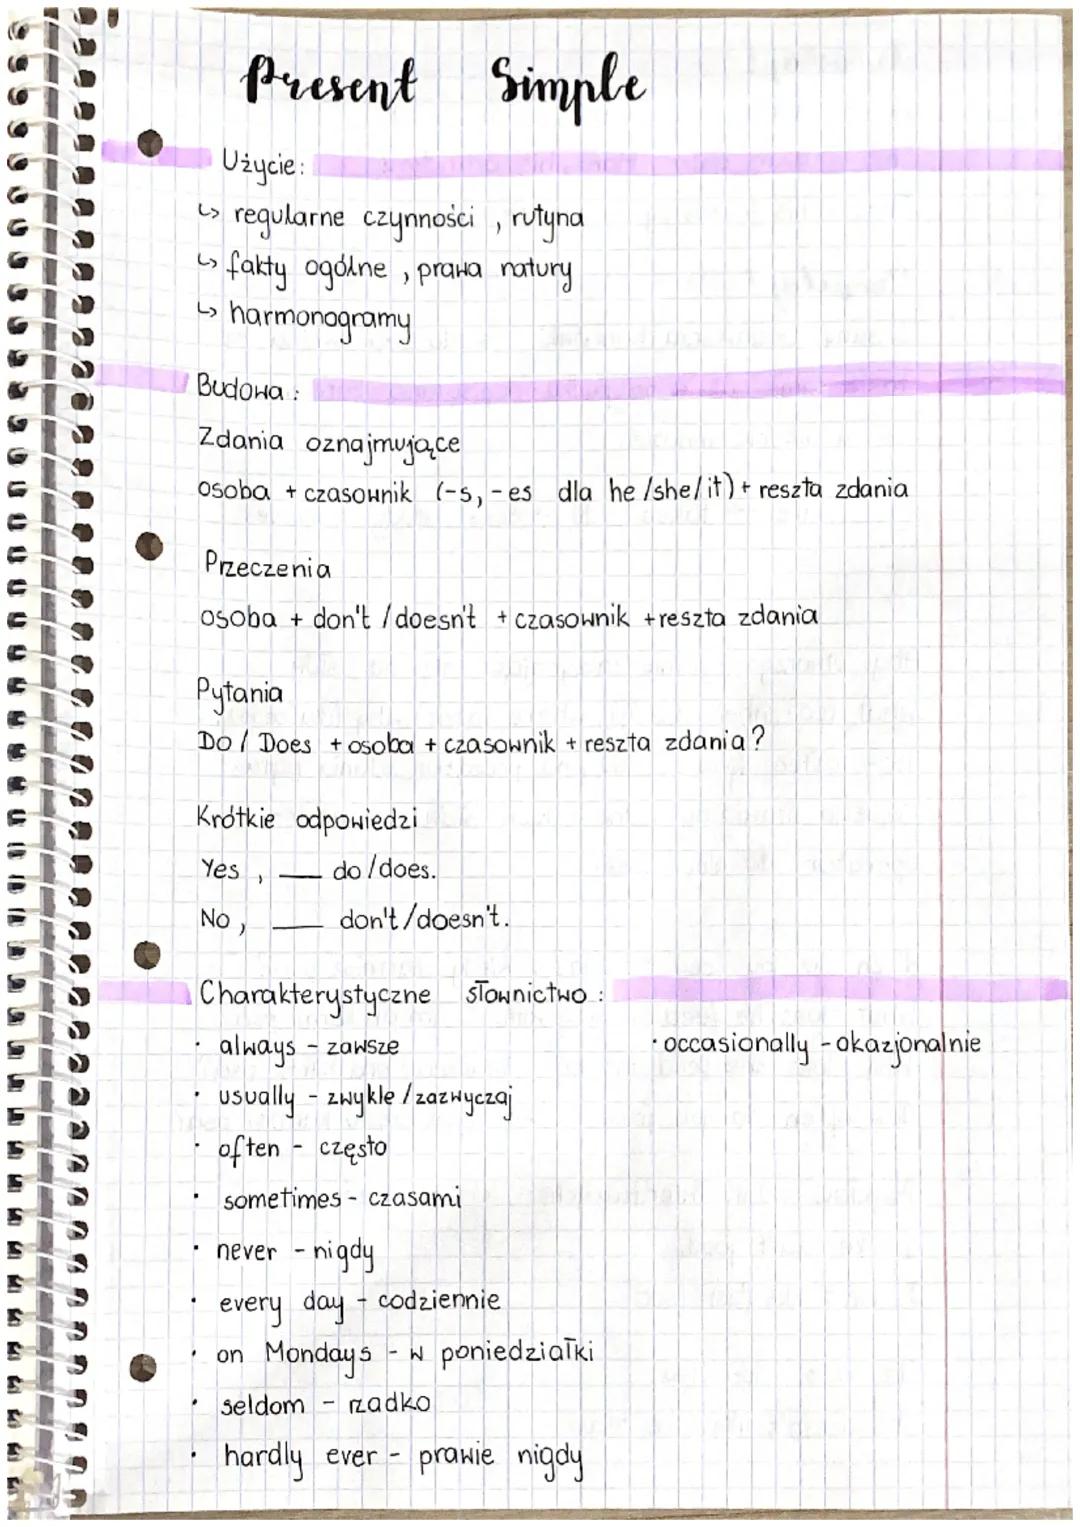 Present Simple
Użycie:
↳ regularne czynności, rutyna
↳ fakty ogólne, prawa natury
↳ harmonogramy
Budowa:
Zdania oznajmujące
osoba + czasownik (-s, -es dla he/she/it) + reszta zdania
Przeczenia
osoba + don't / doesn't + czasownik + reszta zdania
Pytania
Do / Does + osoba + czasownik + reszta zdania?
Krótkie odpowiedzi
Yes, ___ do/does.
No, ___ don't/doesn't.
Charakterystyczne słownictwo:
· always - zawsze
· usually - zwykle / zazwyczaj
· often - często
· sometimes - czasami
· never - nigdy
· every day - codziennie
· on Mondays - w poniedziałki
· seldom - rzadko
· hardly ever - prawie nigdy
· occasionally - okazjonalnie